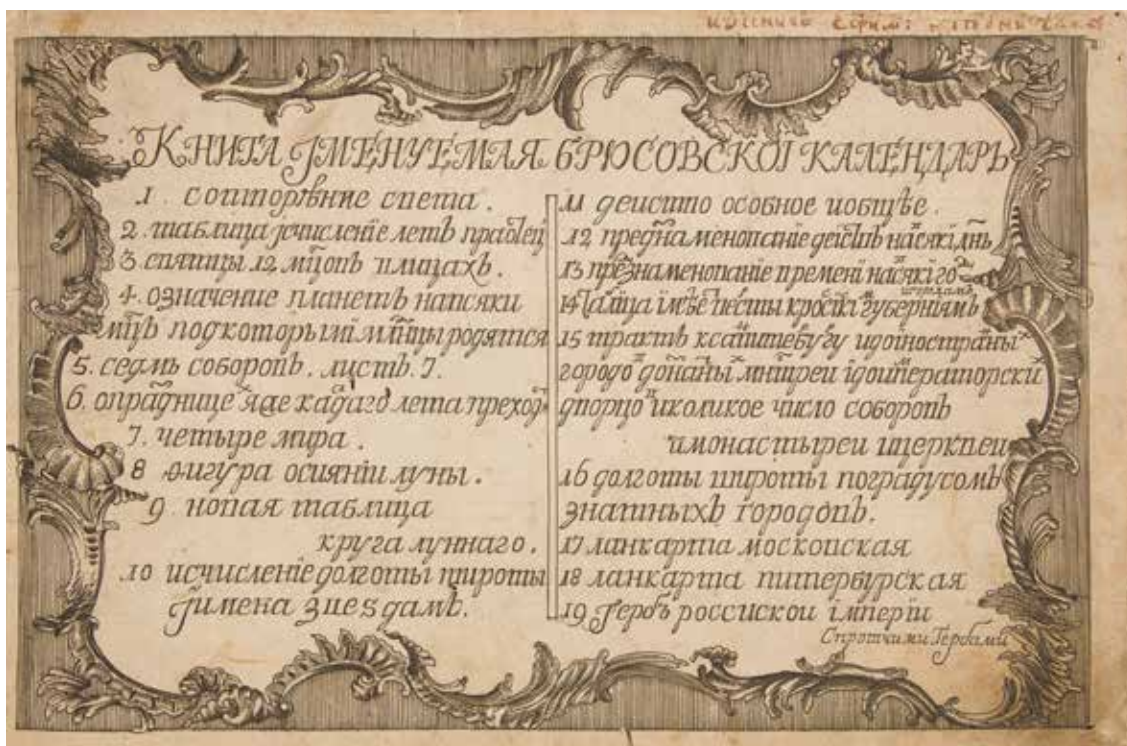 КНИГА JМЕНУЕМАЯ БРЮСОВСКОI КАЛЕНДАРЬ
1. сотворѣние света.
2 таблица jсчисленiе летъ
3. святцы 12 мцовъ влицахъ.
4. означение планетъ навсяки
мцъ подкоторымi родятся
5. седмь соборовъ. листъ. 7.
6. кадаго лета преход
7. четыре мира.
8 фигура осиянiи луны.
9 новая таблица
круга луннаго.
10 исчисленiе долготы широты
jимена звеsдамъ.
11 деиство особное иобщѣе.
12 преднаменованiе деiствъ навсякi днь
13 презнаменованiе времени навсякiго
14 губернiямъ
15 трактъ идоiностраны
городо iдоимператорски
дворцо иколикое число соборовъ
имонастыреи ицерквеи
16 долготы широты поградусомъ
знатныхъ городовъ.
17 ланкарта московская
18 ланкарта питербурская
19 Гербъ россискои iмперiи
Спротчими Гербами